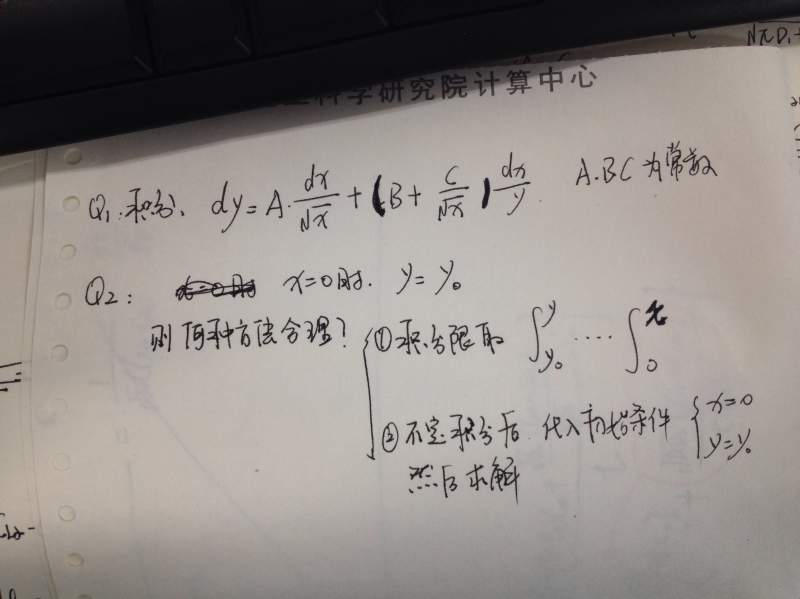 科学研究院计算中心
Q1:积分、 dy = A·dx/√x + (B + C/√x) dx/y A.B C为常数
Q2: x=0时. y=y₀
则何种方法合理? ①积分限取 ∫_{y₀}^{y} ···· ∫_{0}^{x}
②不定积分后 代入初始条件 { x=0 y=y₀
然后求解